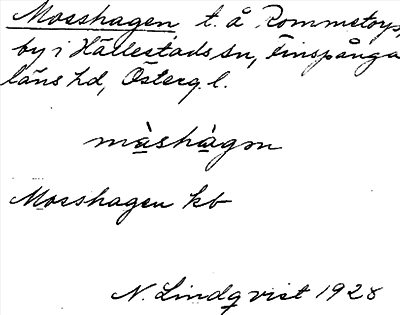 Mosshagen t. å Rommetorps,
by i Hällestads sn, Finspånga
läns hd, Österg. l.
màshàgən
Mosshagen kb
N. Lindqvist 1928